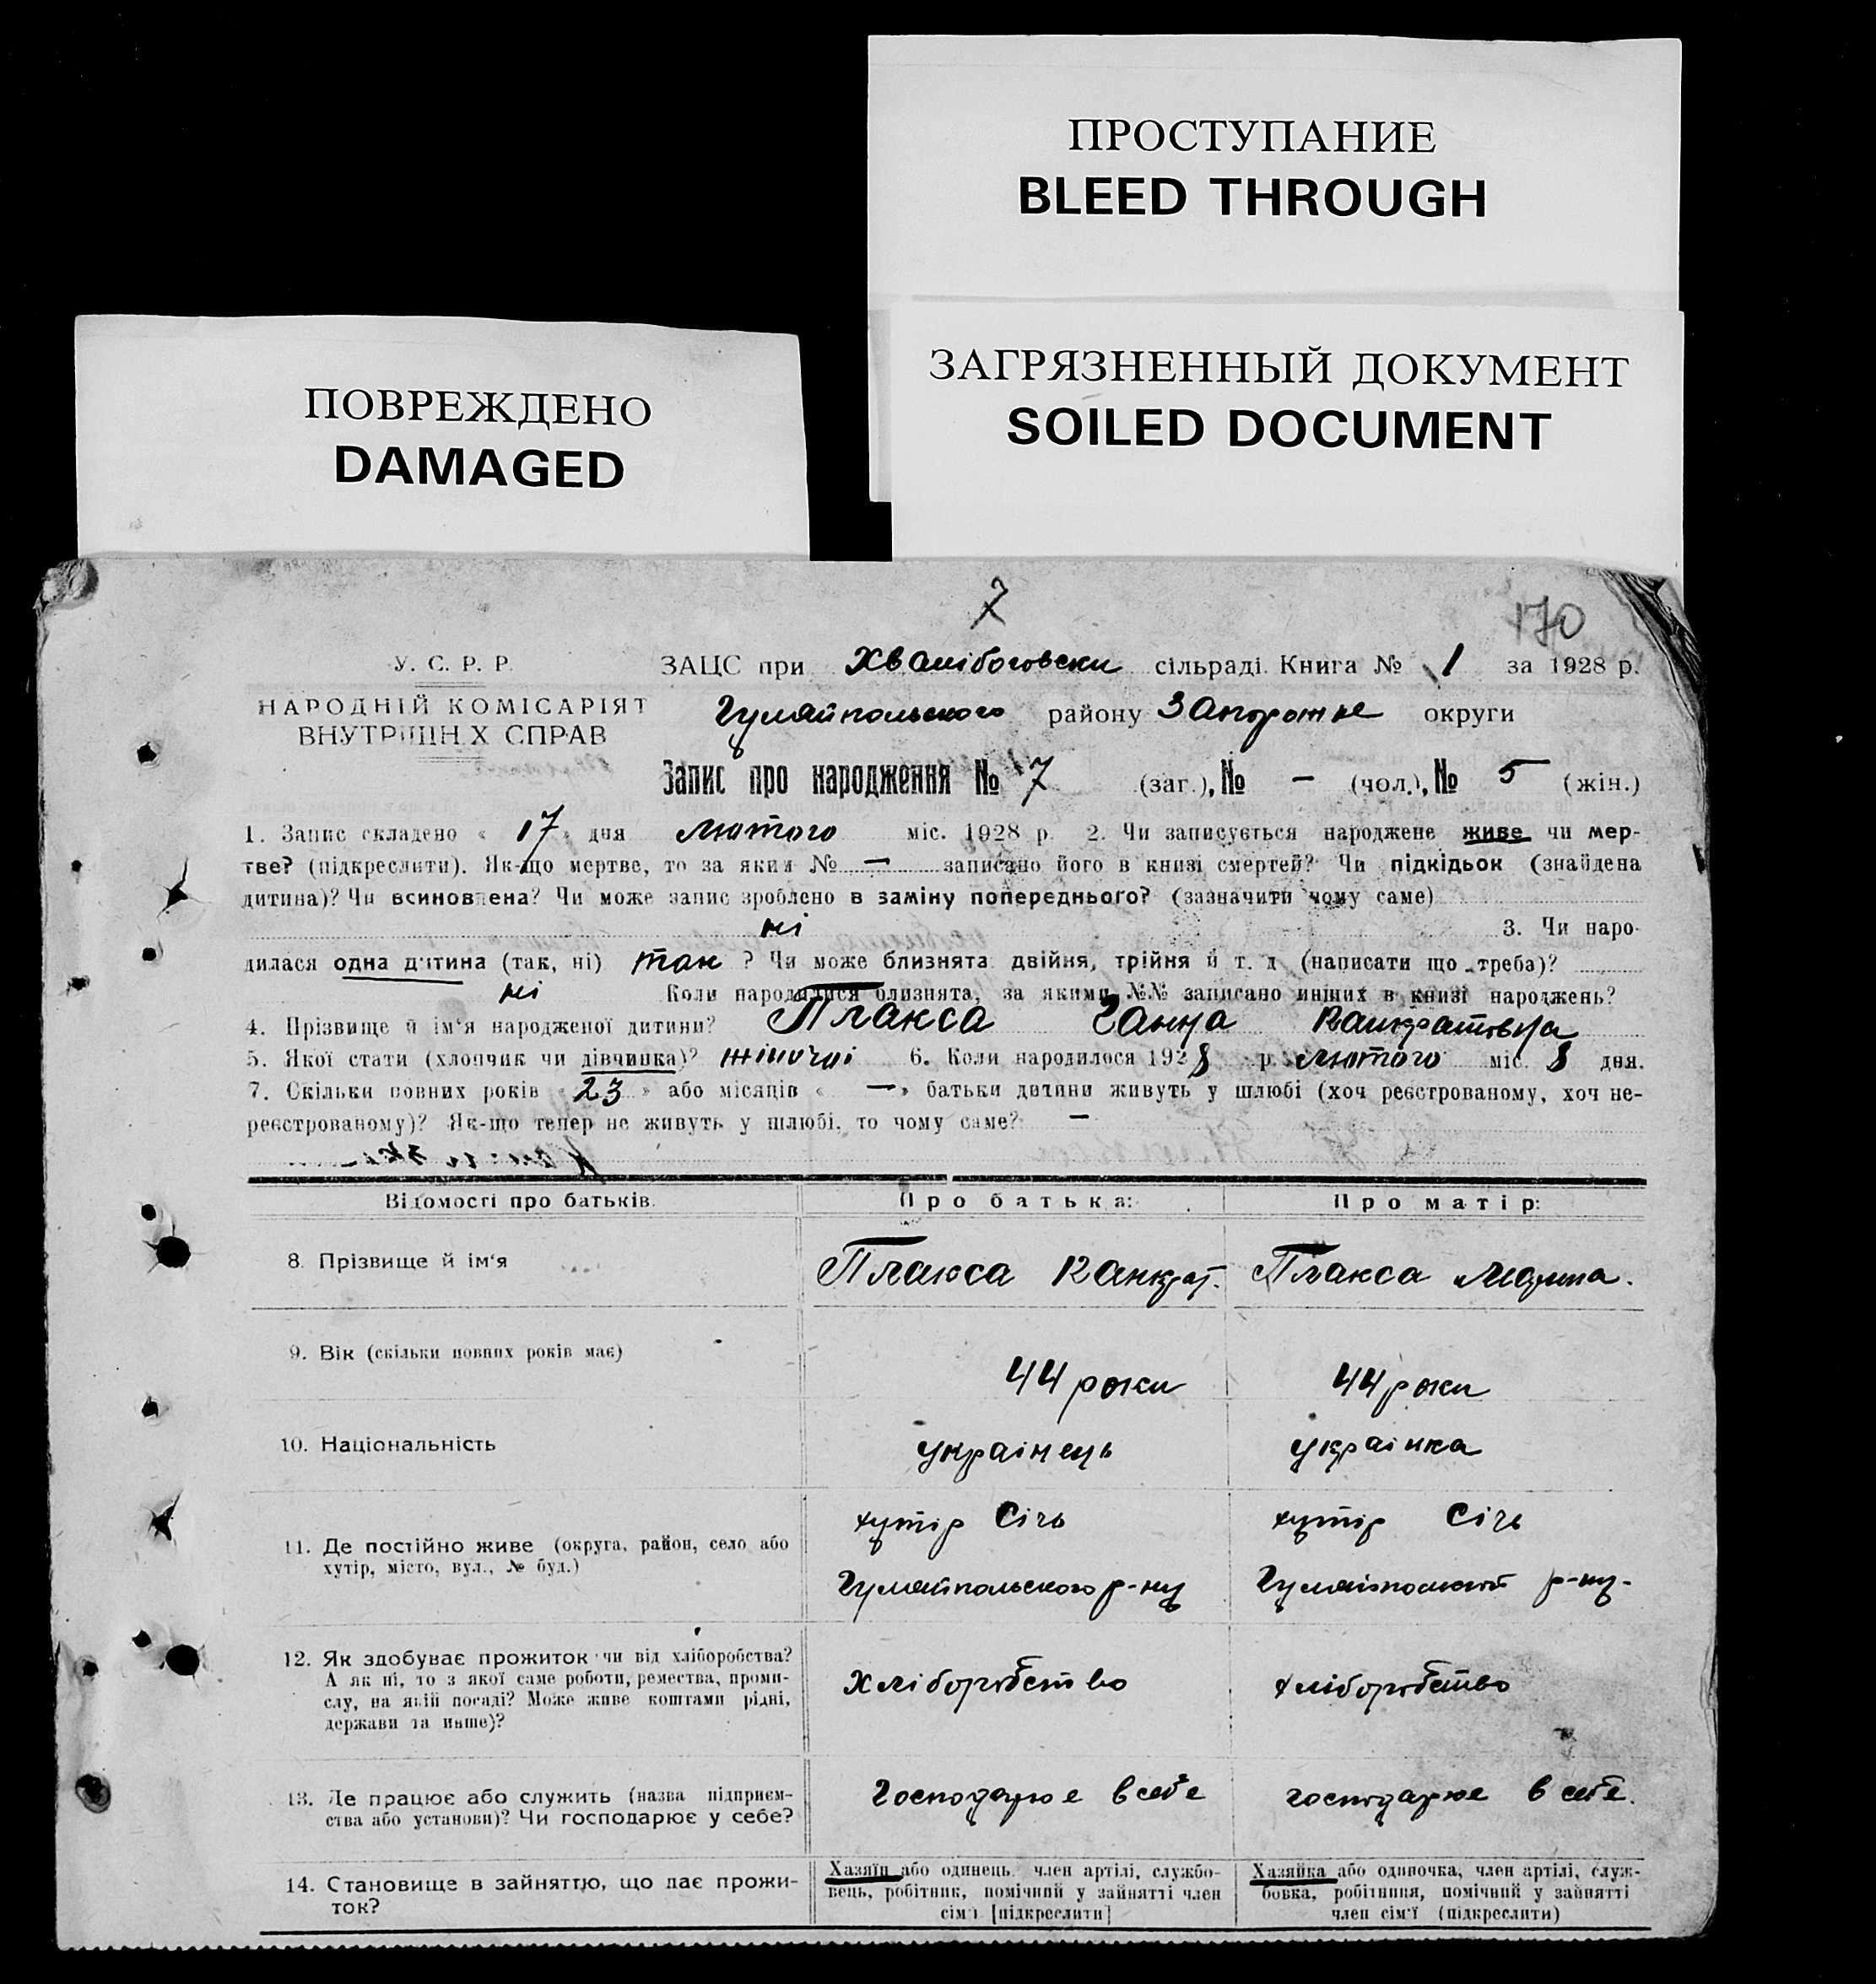 ПРОСТУПАНИЕ
BLEED THROUGH
ЗАГРЯЗНЕННЫЙ ДОКУМЕНТ
SOILED DOCUMENT
ПОВРЕЖДЕНО
DAMAGED
7
170
У. С. Р. Р.
НАРОДНІЙ КОМІСАРІЯТ
ВНУТРІШНІХ СПРАВ
ЗАЦС при Хвалібоговски сільраді. Книга № 1 за 1928 р.
Гуляйпольского району Запоріжже округи
Запис про народження № 7 (заг.), № — (чол.), № 5 (жін.)
1. Запис складено « 17 » дня лютого міс. 1928 р. 2. Чи записується народжене живе чи мер-
тве? (підкреслити). Як-що мертве, то за яким № — записано його в книзі смертей? Чи підкідьок (знайдена
дитина)? Чи всиновлена? Чи може запис зроблено в заміну попереднього? (зазначити чому саме)
ні 3. Чи наро-
дилася одна дитина (так, ні) так ? Чи може близнята: двійня, трійня й т. д. (написати що треба)?
ні Коли народилися близнята, за якими №№ записано инших в книзі народжень?
4. Прізвище й ім'я народженої дитини? Плакса Ганна Канкратовна
5. Якої стати (хлопчик чи дівчинка)? жіноччі 6. Коли народилося 1928 р. лютого міс. 8 дня.
7. Скільки повних років « 23 » або місяців « — » батьки дитини живуть у шлюбі (хоч реєстрованому, хоч не-
реєстрованому)? Як-що тепер не живуть у шлюбі, то чому саме? —
Відомості про батьків. Про батька: Про матір:
8. Прізвище й ім'я Плакса Канкрат. Плакса Марина.
9. Вік (скільки повних років має) 44 роки 44 роки
10. Національність українець українка
хутір Січь хутір Січь
11. Де постійно живе (округа, район, село або
хутір, місто, вул., № буд.)
Гуляйпольского р-ну р-ну.
12. Як здобуває прожиток чи від хліборобства?
А як ні, то з якої саме роботи, ремества, проми-
слу, на якій посаді? Може живе коштами рідні,
держави та инше)?
Хліборобство хліборобство
13. Де працює або служить (назва підприєм-
ства або установи)? Чи господарює у себе?
Господарює в себе господарює в себе.
14. Становище в зайняттю, що дає прожи-
ток?
Хазяїн або одинець, член артілі, службо-
вець, робітник, помічний у зайнятті член
сім'ї [підкреслити]
Хазяйка або одиночка, член артілі, служ-
бовка, робітниця, помічний у зайнятті
член сім'ї (підкреслити)